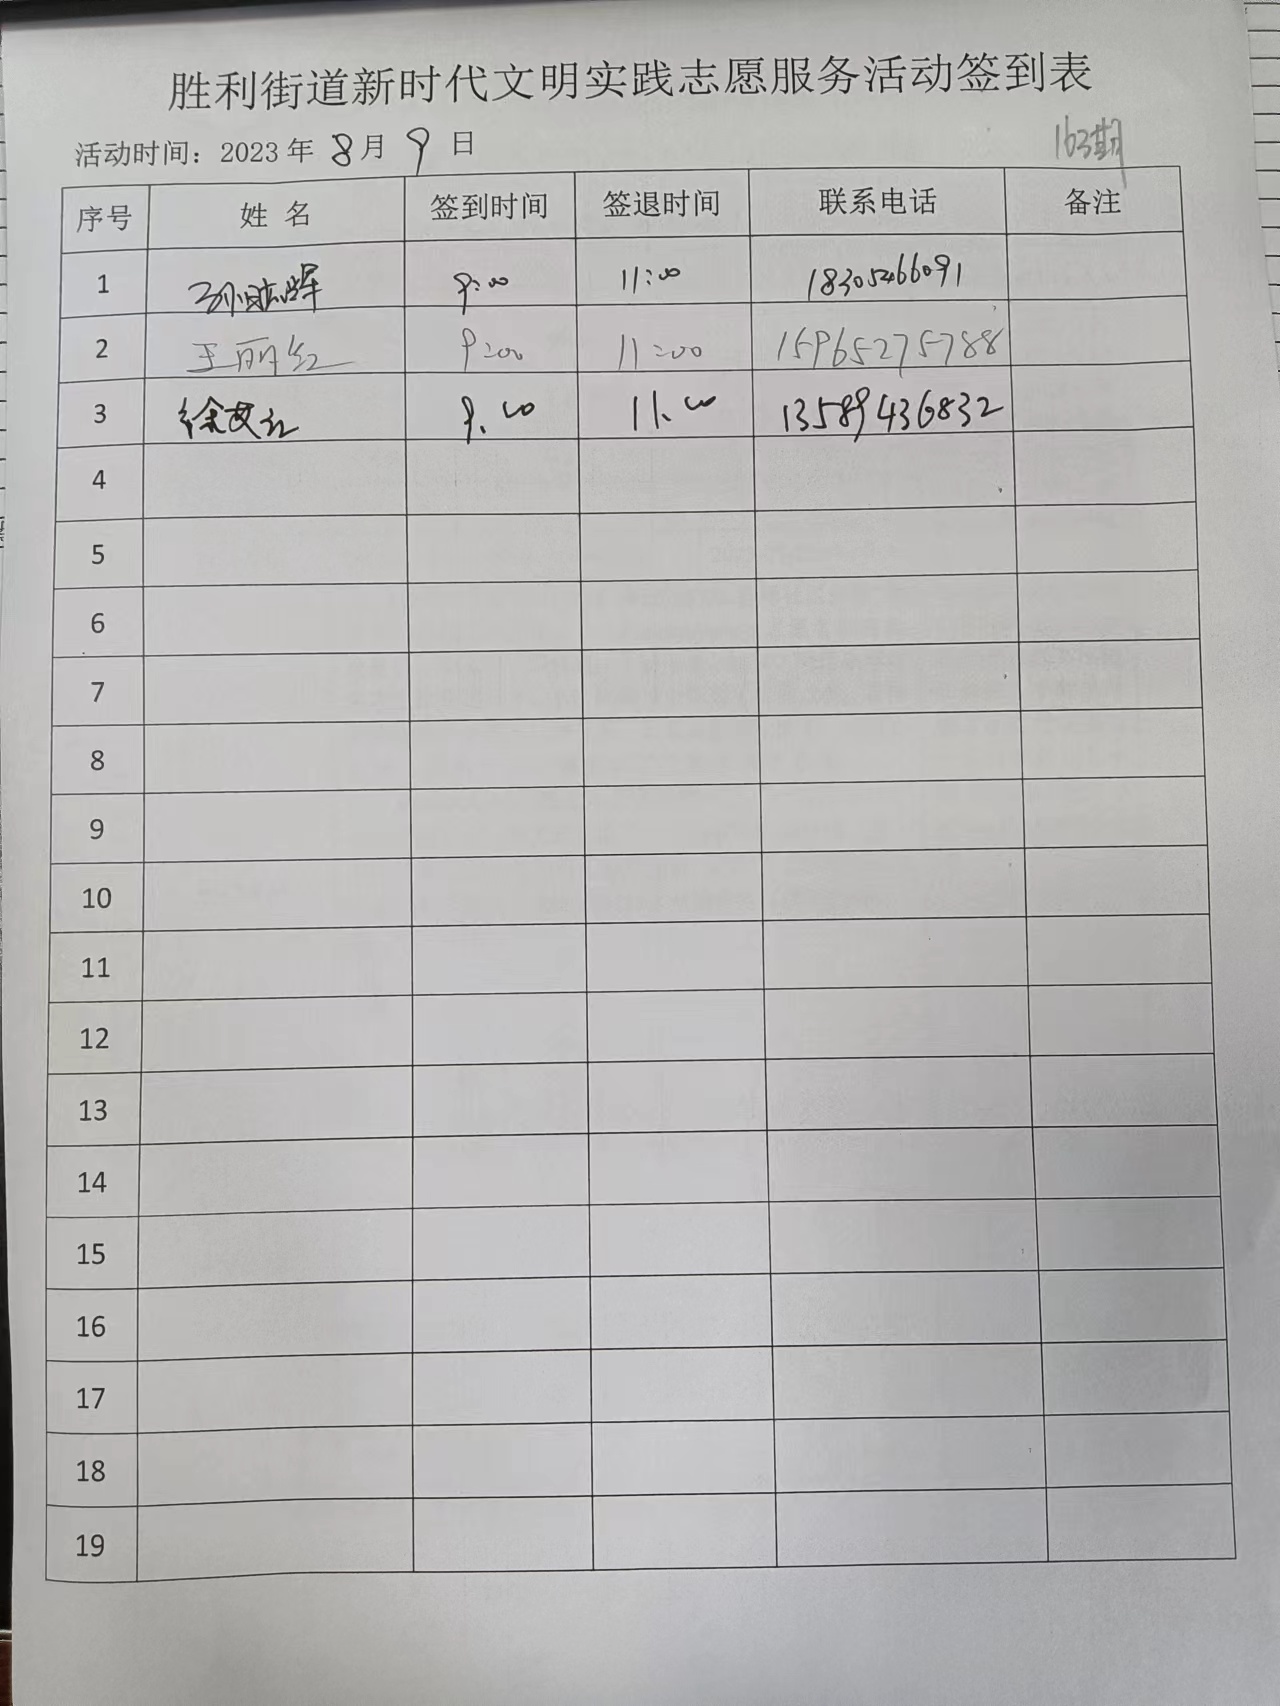 胜利街道新时代文明实践志愿服务活动签到表
活动时间：2023年 8月 9 日
163期
序号 姓 名 签到时间 签退时间 联系电话 备注
1 9:00 11:00 18305466091
2 王丽红 9:00 11:00 15965275788
3 9:00 11:00 13589436832
4
5
6
7
8
9
10
11
12
13
14
15
16
17
18
19